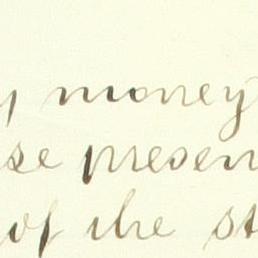 money
se presen
of the st